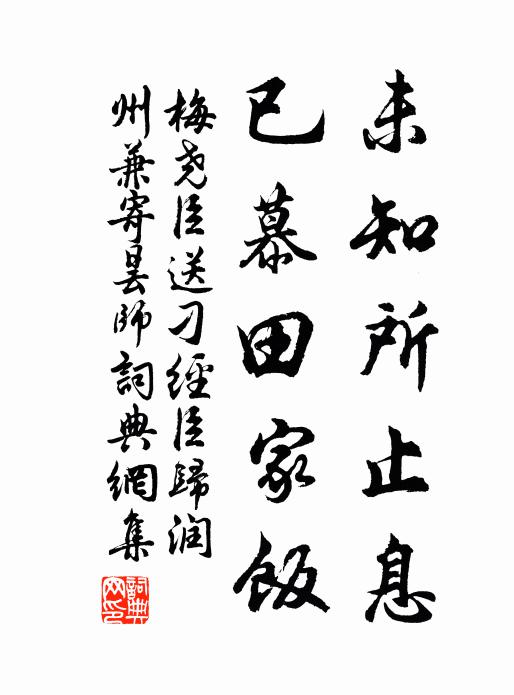 未知所止息
已慕田家飯
梅尭臣送刁經臣歸润
州兼寄曇師詞典網集
詞典网印